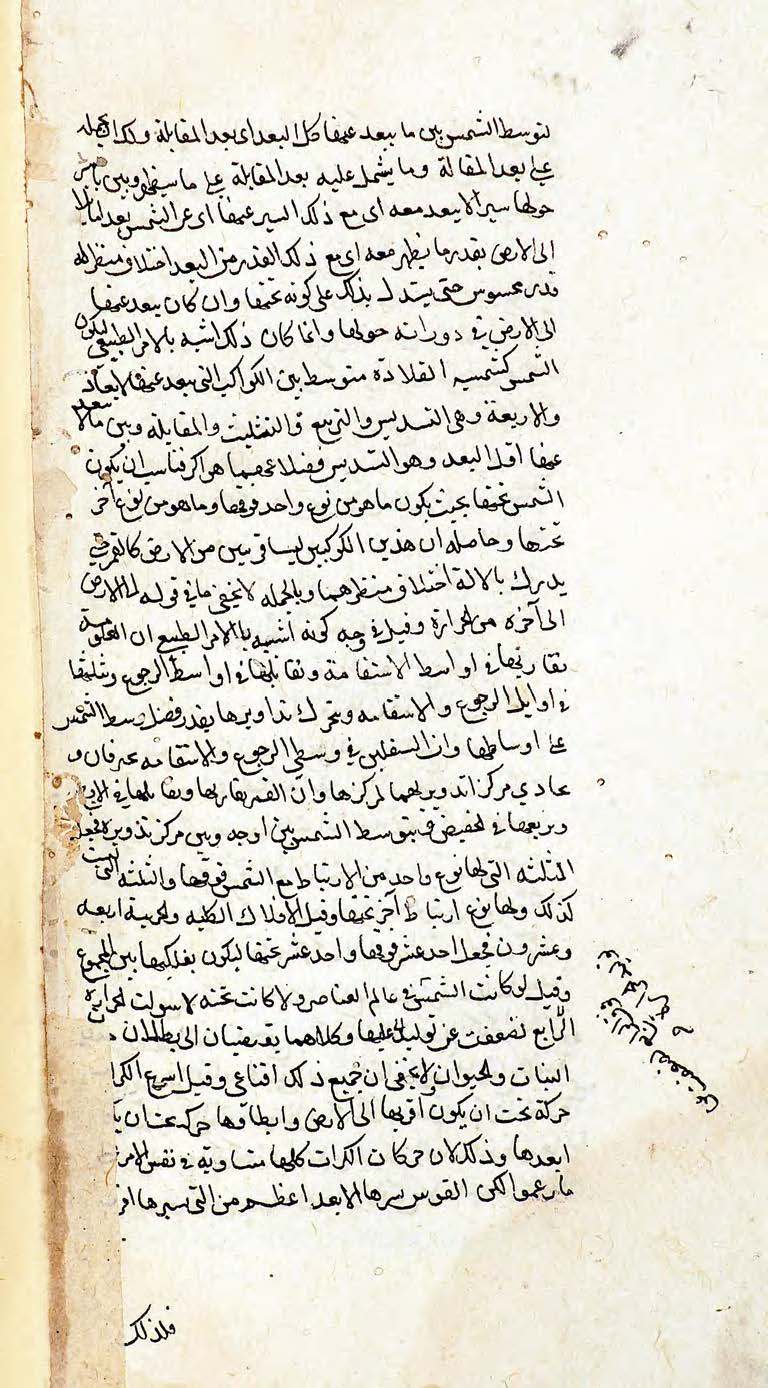 لتوسط الشمس بين ما يبعد عنها كل البعد اى بعد المقابلة وكذا يحمله
على بعد المقابلة وما يشمل عليه بعد المقابلة على ما سيظهر وبين ما
حولها سير الا يبعد معه اى مع ذلك السير عنها اى عن الشمس بعد
الى الارض بقدر ما يظهر معه اى مع ذلك القدر من البعد اختلاف منظر له
قدر محسوس حتى يستدل بذلك على كونه تحتها وان كان يبعد عنها
الى الارض فى دورانه حولها وانما كان ذلك اشبه بالامر الطبيعى ليكون
الشمس كشمسه القلادة متوسط بين الكواكب التى يبعد عنها الابعاد
والاربعة وهى التسديس والتربيع والتثليث والمقابلة وبين ما لا يبعد
عنها اقل البعد وهو التسديس فضلا عما هو اكثر فناسب ان يكون
الشمس تحتها بحيث يكون ما هو من نوع واحد فوقها وما هو من نوع آخر
تحتها وحاصله ان هذين الكوكبين ليسا قريبين من الارض كالقمر حتى
يدرك بالالة اختلاف منظرهما وبالجمله لا يخفى ما فى قوله الى الارض
الى آخره من الحزازة وقيل فى وجه كونه اشبه بالامر الطبيعى ان العلوية
تقارنها فى اواسط الاستقامة وتقابلها فى اواسط الرجوع وتثلثها
فى اوايل الرجوع والاستقامه ويتحرك تداويرها بقدر فضل وسط الشمس
على اوساطها وان السفلين فى وسطى الرجوع والاستقامه يحترقان و
يحاذى مركز تدويريهما لمركزها وان القمر يقاربها ويقابلها فى الاوج
ويربعها فى الحضيض فيتوسط الشمس بين اوجه وبين مركز تدويره فجعل
الثلثه التى لها نوع واحد من الارتباط مع الشمس فوقها والثلثه التى ليست
كذلك ولها نوع ارتباط آخر تحتها وقيل الافلاك الكليه والجزئية اربعه
وعشرون فجعل احد عشر فوقها واحد عشر تحتها ليكون بفلكيها بين المجموع
وقيل لو كانت الشمس فى عالم العناصر ولا كانت تحته لاستولت الحرارة
الرابع لضعفت عن توليدها عليها وكلاهما يقتضيان الى بطلان
النبات والحيوان ولا يخفى ان جميع ذلك اقناعى وقيل اسرع الكرات
حركة يجب ان يكون اقربها الى الارض وابطاؤها حركة يجب ان
ابعدها وذلك لان حركات الكرات كلها متساوية فى نفس الامر
ما زعموا لكن القوس سيرها الابعد اعظم من التى سيرها
فلذلك